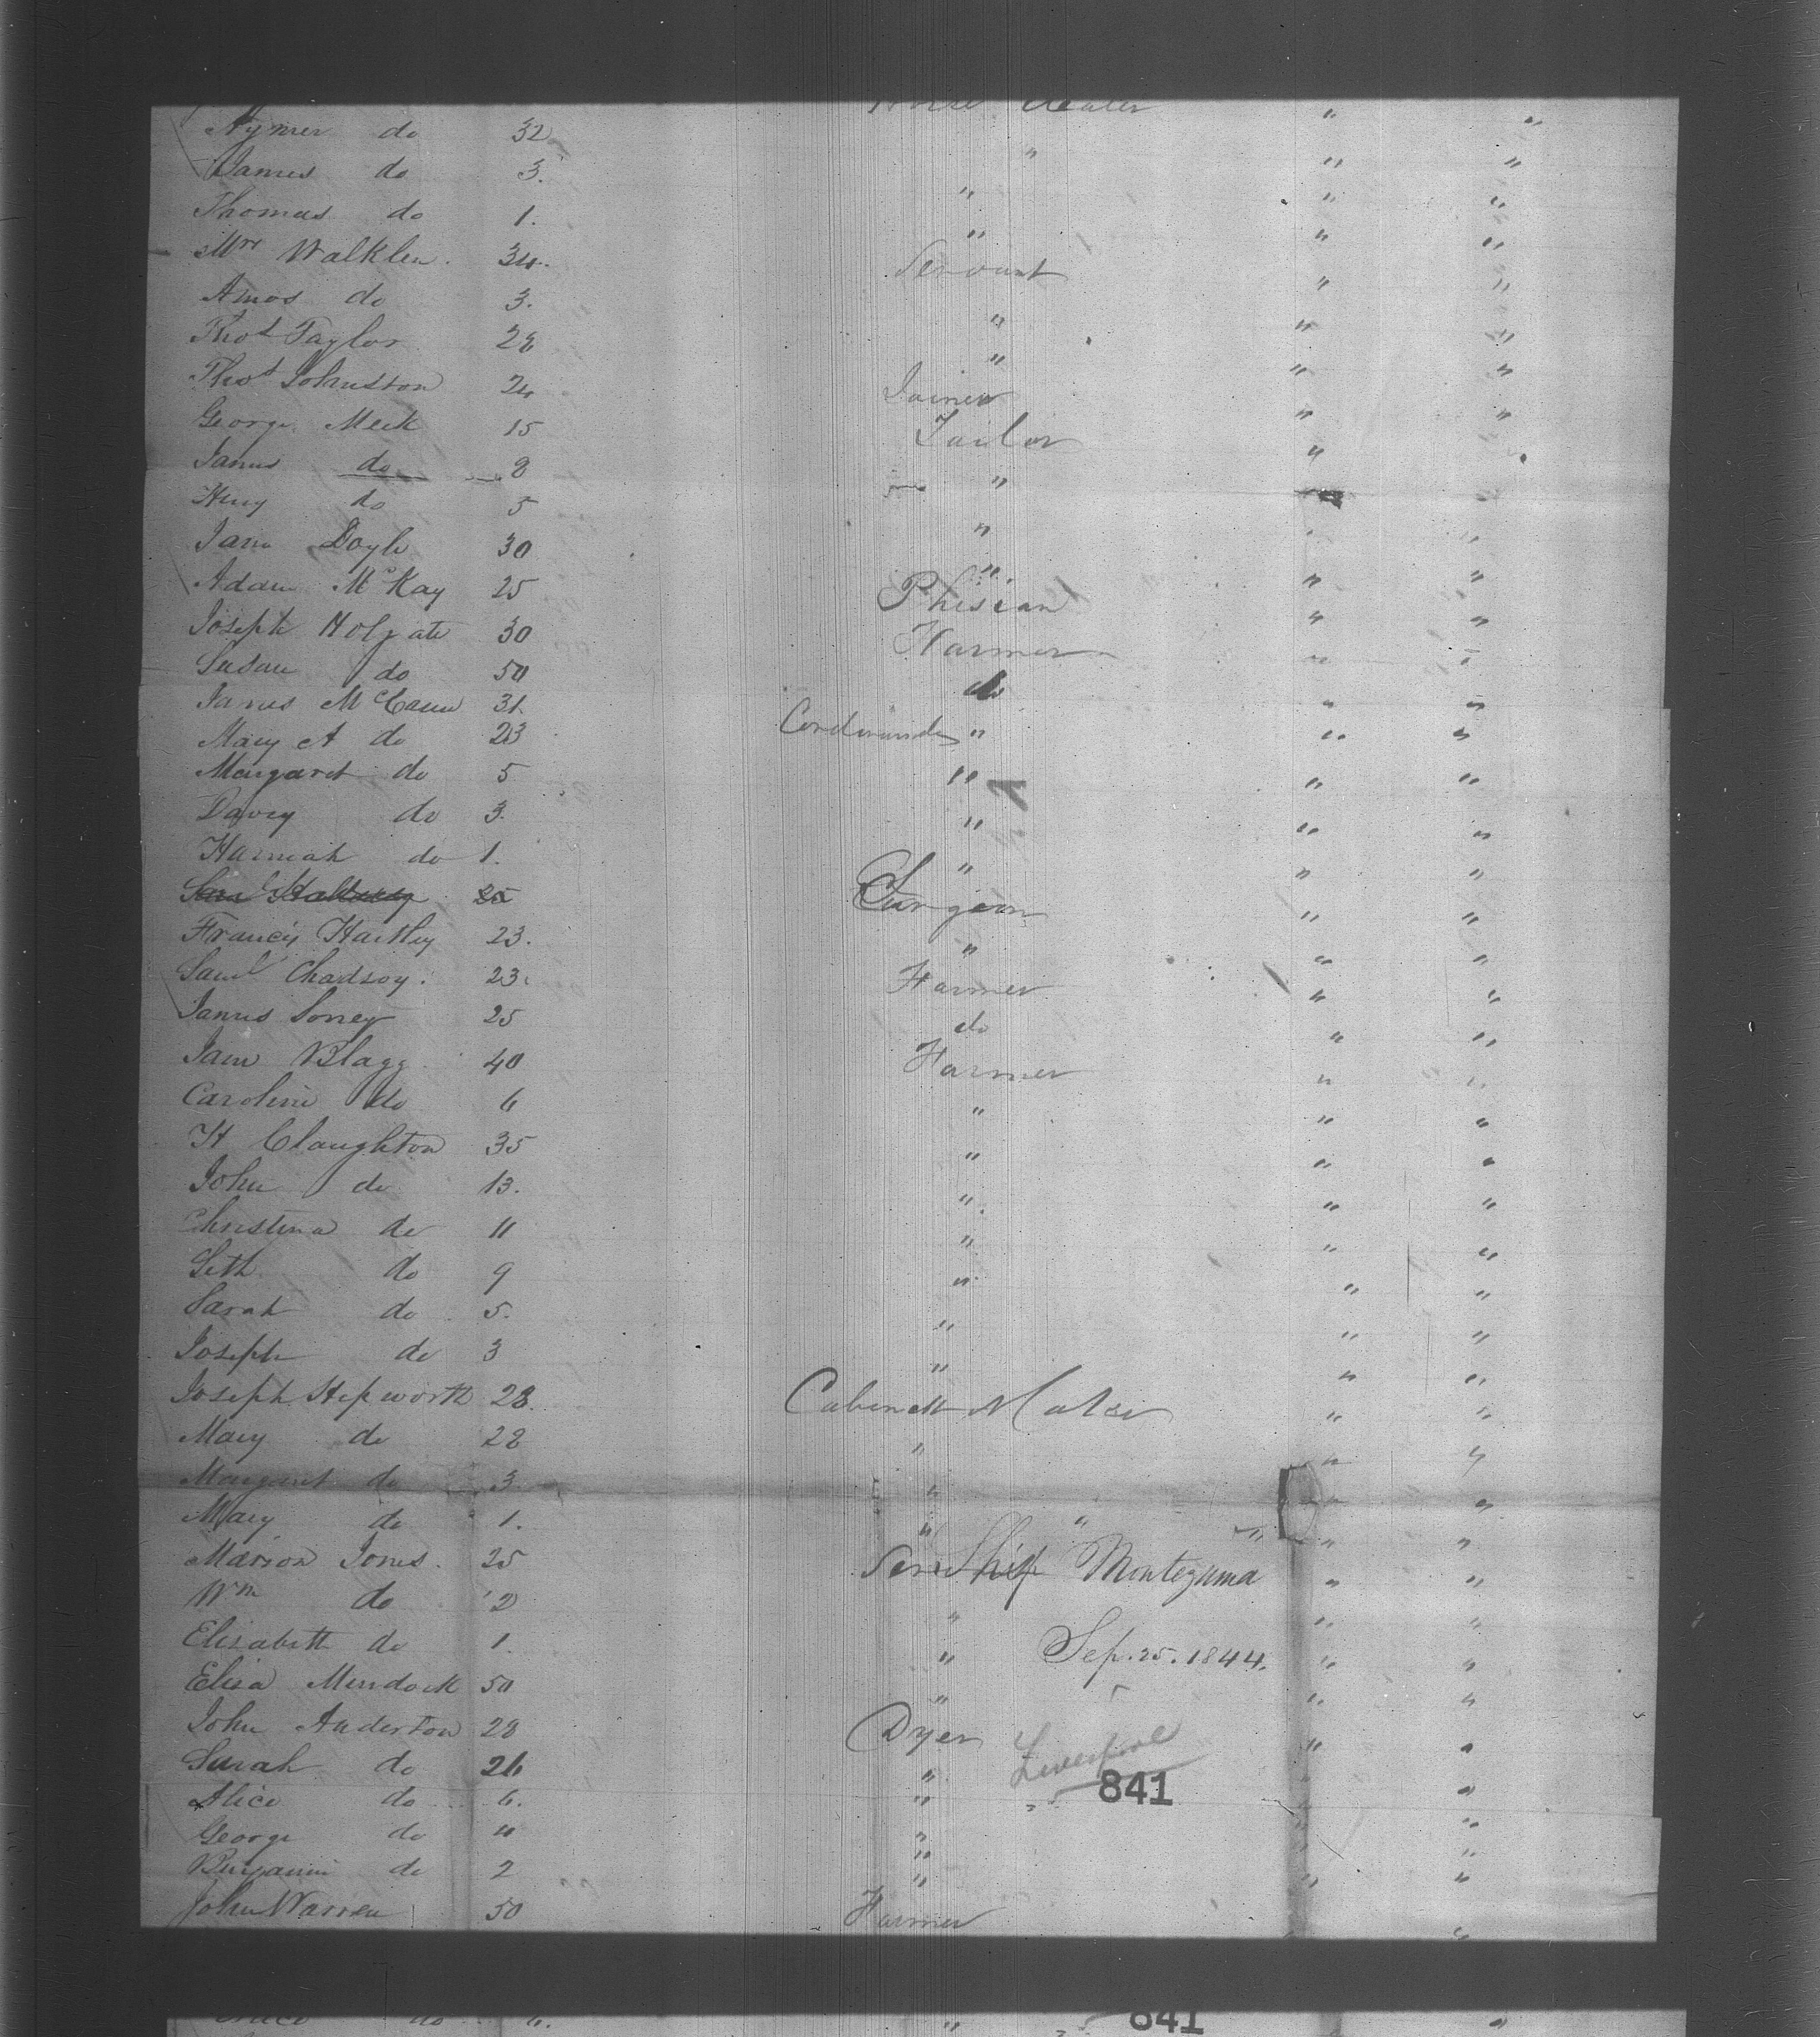 Horse Dealer " "
Nymer do 32 "
James do 3. " " "
Thomas do 1. " " "
Mrs Walklen. 34. Servant " "
Amos do 3. " " "
Thos Taylor 28 " " "
Thos Johnston 24 Joiner " "
George Meek 15 Tailor "
James do 8 "
Henry do 5 "
Jane Doyle 30 " " "
Adam McKay 25 Phisian " "
Joseph Holgate 30 Farmer " "
Susan do 50 do " "
James McCann 31. " " "
Mary A do 23 " " "
Margaret do 5 " " "
Davey do 3. " " "
Hannah do 1. " " "
25 Surgeon " "
Francis Hartley 23. " " "
Saml Chadsoy. 23. Farmer " "
James Soney 25 do " "
Jane Blagg 40 Farmer " "
Caroline do 6 " " "
H Claughton 35 " " "
John do 13. " " "
Christina do 11 " " "
Seth do 9 " " "
Sarah do 5. " " "
Joseph do 3 " " "
Joseph Hepworth 28. Cabinett Maker " "
Mary do 28 " " "
Margaret do 3 " " "
Mary do 1. " " " "
Marion Jones. 25 Ship Montezuma " "
Wm do 2 " " "
Elisabeth do 1. " Sep. 25. 1844. " "
Elisa Murdock 50 " " "
John Anderton 28 Dyer Liverpool " "
Sarah do 26 " 841 "
Alice do 6. " " "
George do 4 " "
Benjamin do 2 " " "
John Warren 50 Farmer "
do 6. " 841 "